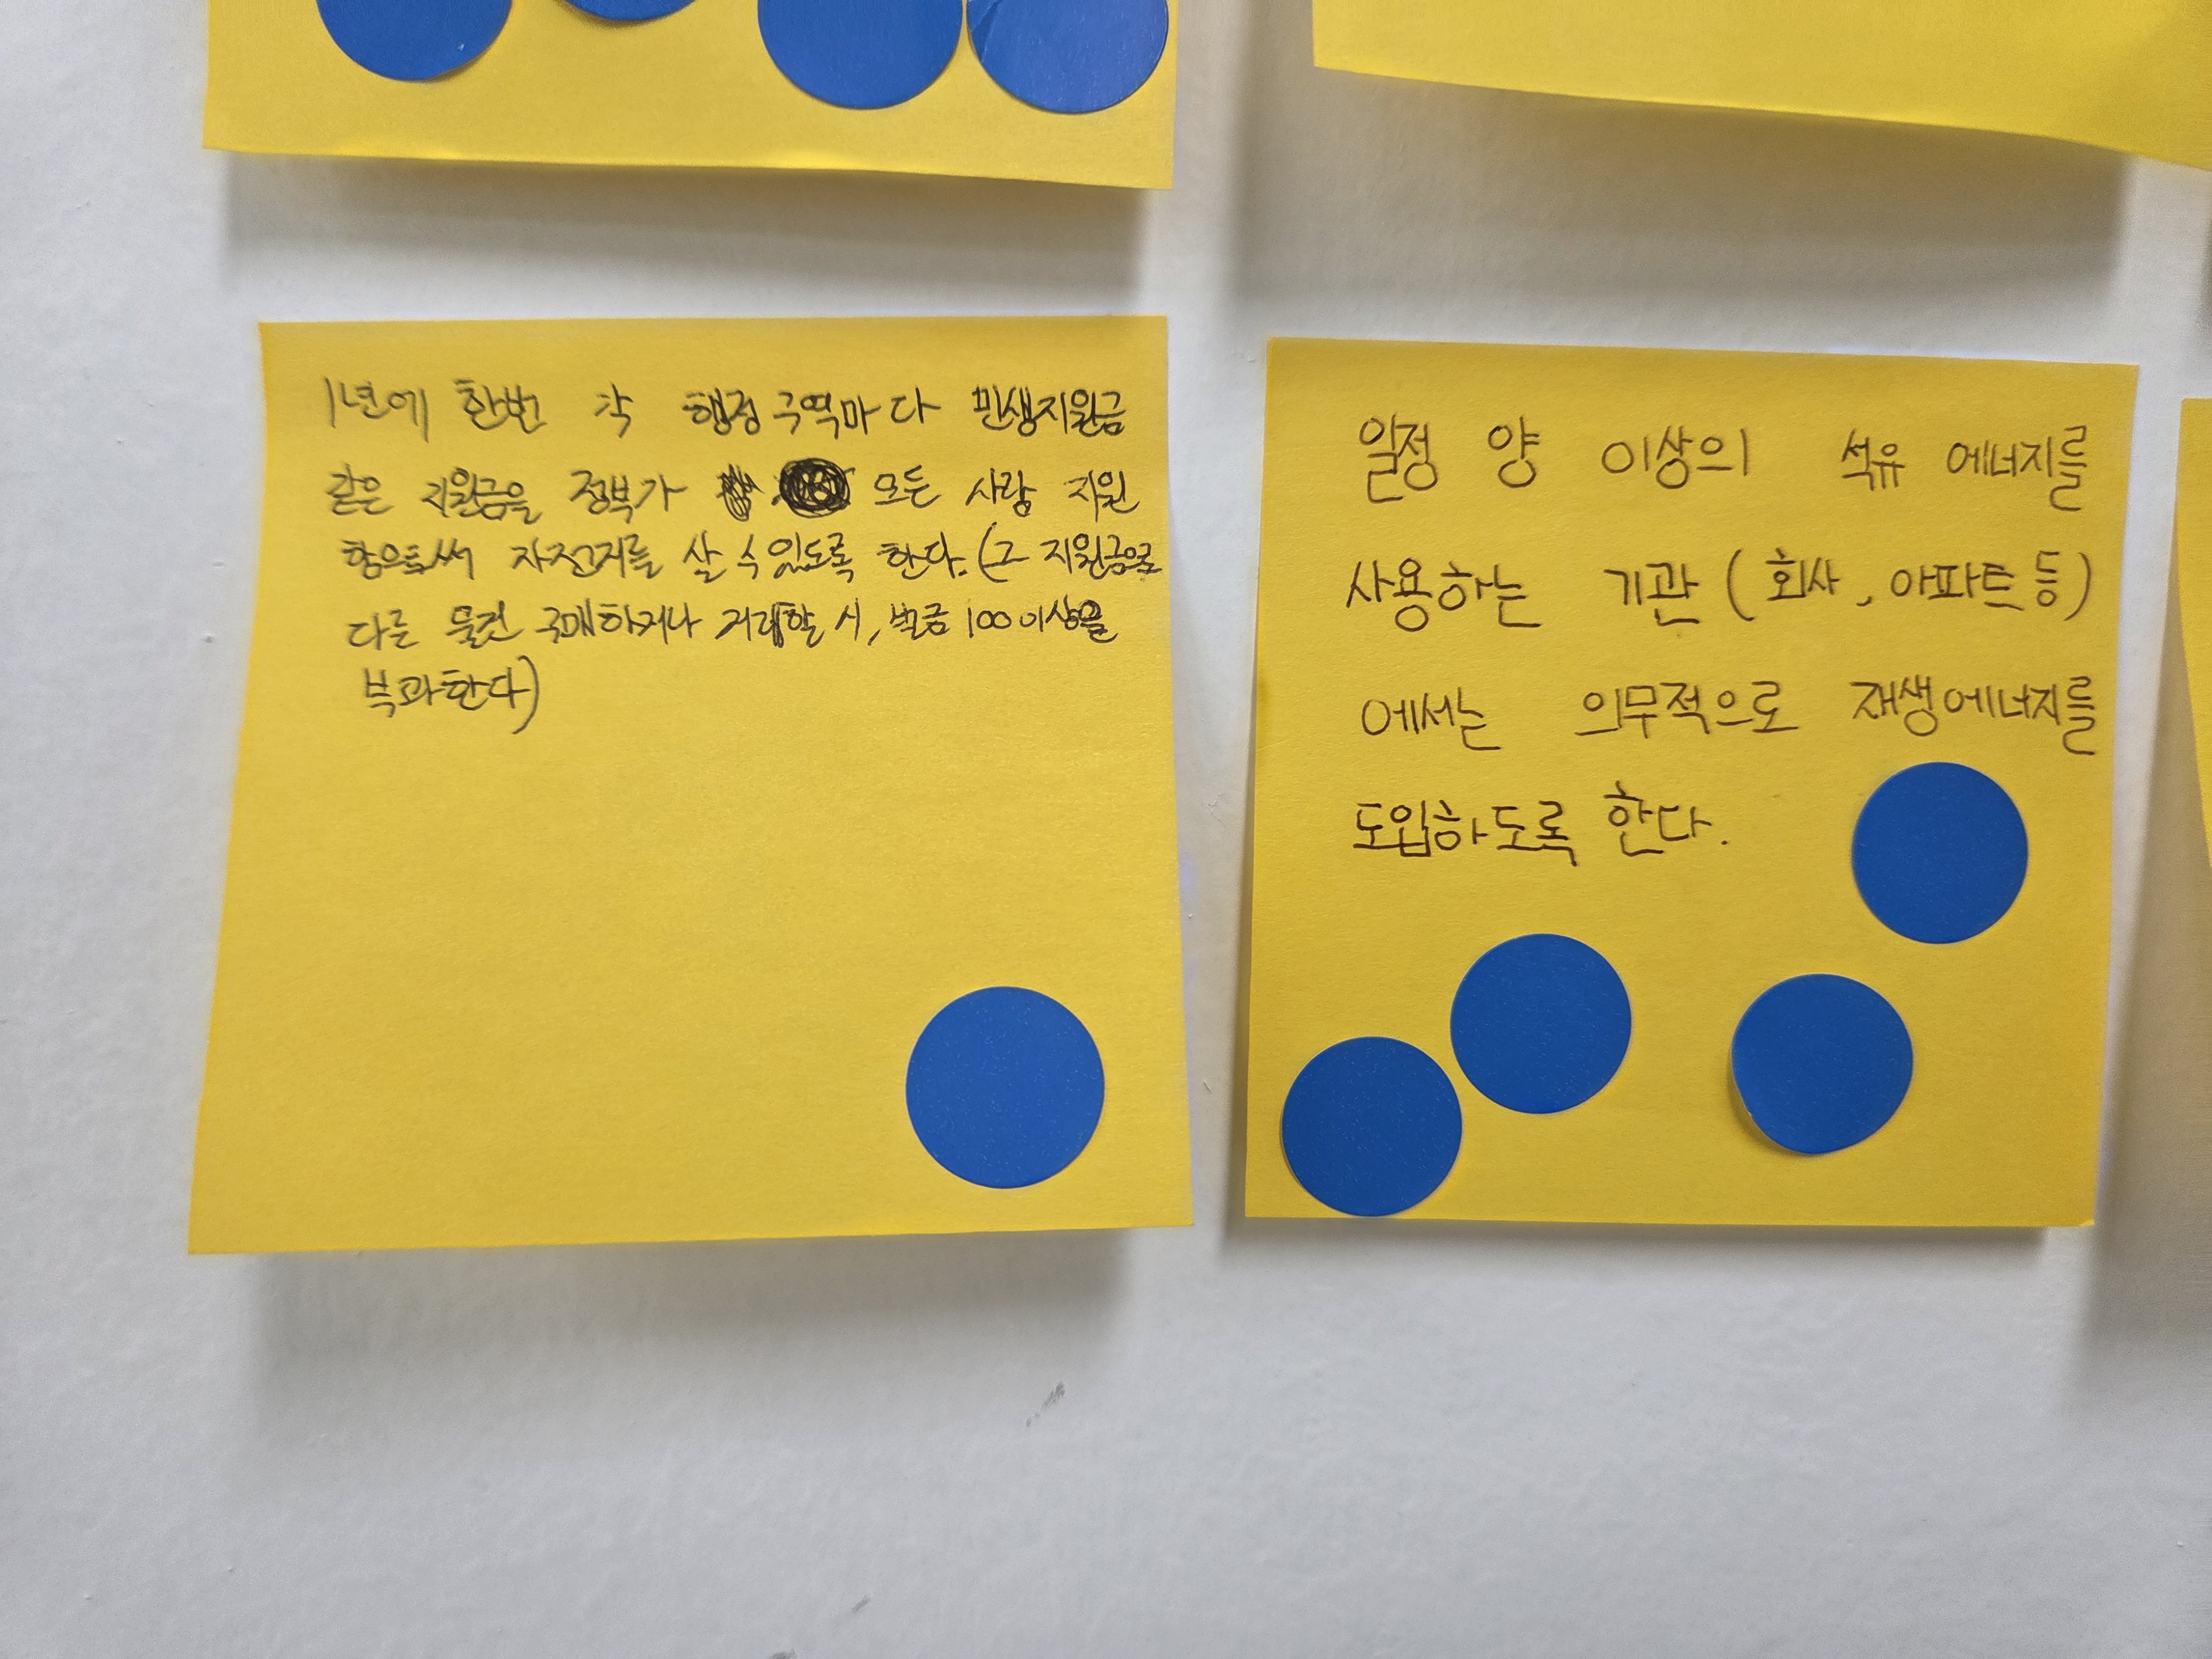 1년에 한번 각 행정구역마다 민생지원금
같은 지원금을 정부가 모든 사람 지원
함으로써 자전거를 살 수 있도록 한다. (그 지원금으로
다른 물건 구매하거나 거래할 시, 벌금 100이상을
부과한다)
일정 양 이상의 석유 에너지를
사용하는 기관 (회사, 아파트 등)
에서는 의무적으로 재생에너지를
도입하도록 한다.